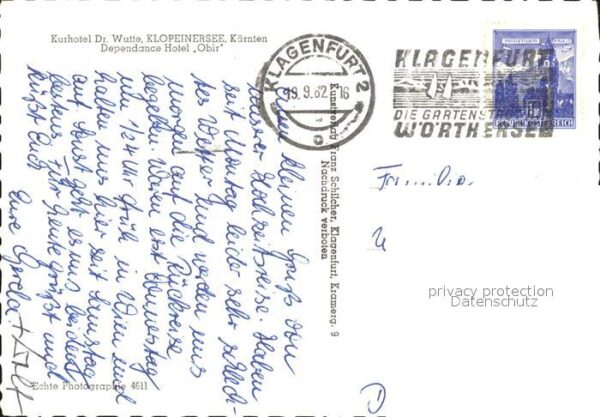 Kurhotel Dr. Wutte, KLOPEINERSEE, Kärnten
Dependance Hotel „Obir"
KLAGENFURT 2
19.9.62 - 16
KLAGENFURT
DIE GARTENSTADT
WÖRTHERSEE
Kunstverlag Franz Schilcher, Klagenfurt, Kramerg. 9
Nachdruck verboten
kleinen Gruß von
unserer Hochzeitsreise. Haben
seit Montag leider sehr schlech-
tes Wetter und werden uns
morgen auf die Rückreise
begeben. Waren erst
um 1/4 4 Uhr früh in Wien und
halten uns hier seit Samstag
auf. Sonst geht es uns
bestens. Für heute grüßt und
küßt Euch
Eure
Familie
privacy protection
Datenschutz
Echte Photographie 4611